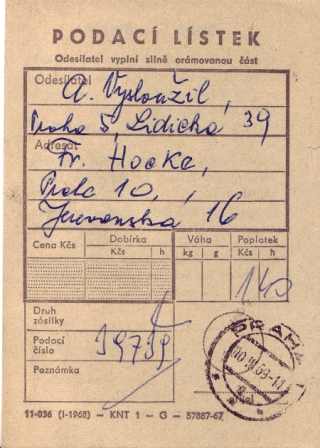 PODACÍ LÍSTEK
Odesílatel vyplní silně orámovanou část
Odesílatel A. Vysloužil,
Praha 5, Lidická 39
Adresát Fr. Hocke,
Praha 10.,
Jerevanská 16
Cena Kčs Dobírka Váha Poplatek
Kčs h kg g Kčs h
140
Druh zásilky
Podací číslo 19799
Poznámka
PRAHA
11-036 (I-1968) — KNT 1 — G — 57887-67